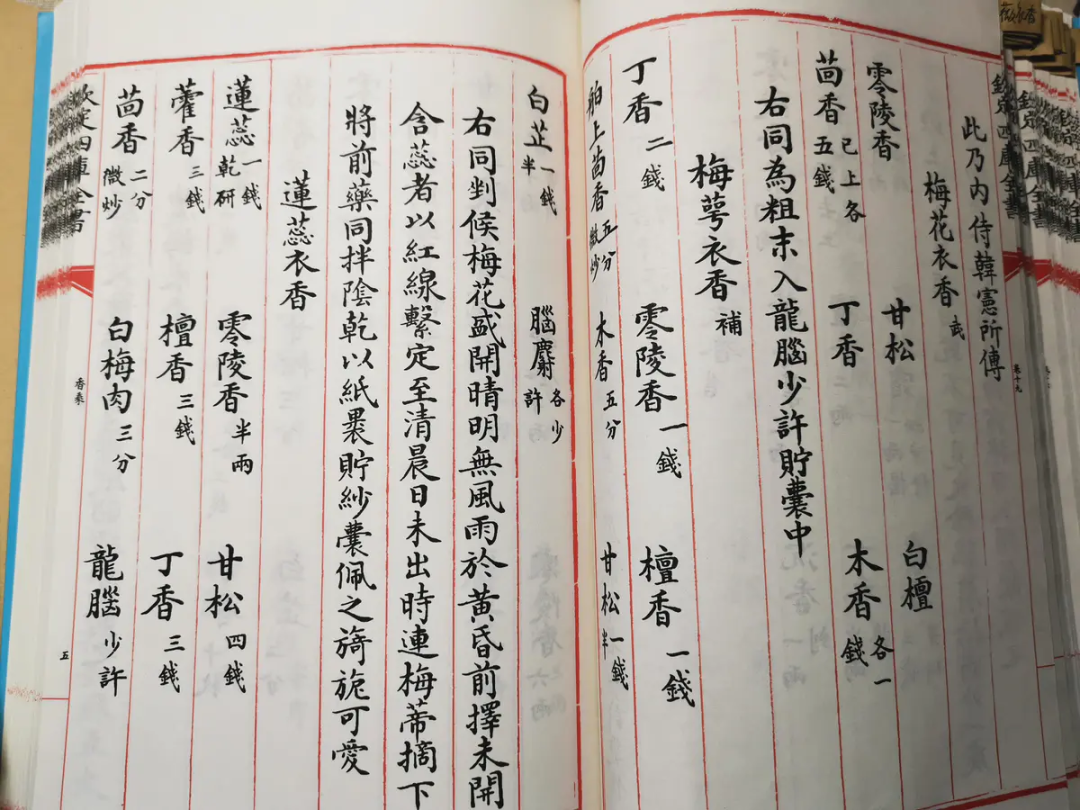 欽定四庫全書 卷十九
此乃内侍韓憲所傳
梅花衣香 武
零陵香 甘松 白檀
茴香 已上各五錢 丁香 木香 各一錢
右同為粗末入龍腦少許貯囊中
梅萼衣香 補
丁香 二錢 零陵香 一錢 檀香 一錢
舶上茴香 五分微炒 木香 五分 甘松 一錢半
白芷 一錢半 腦麝 各少許
右同剉候梅花盛開晴明無風雨於黄昏前擇未開
含蕊者以紅線繫定至清晨日未出時連梅蒂摘下
將前藥同拌陰乾以紙裹貯紗囊佩之旖旎可愛
蓮蕊衣香
蓮蕊 一錢乾研 零陵香 半兩 甘松 四錢
藿香 三錢 檀香 三錢 丁香 三錢
茴香 二分微炒 白梅肉 三分 龍腦 少許
欽定四庫全書 香乘 五